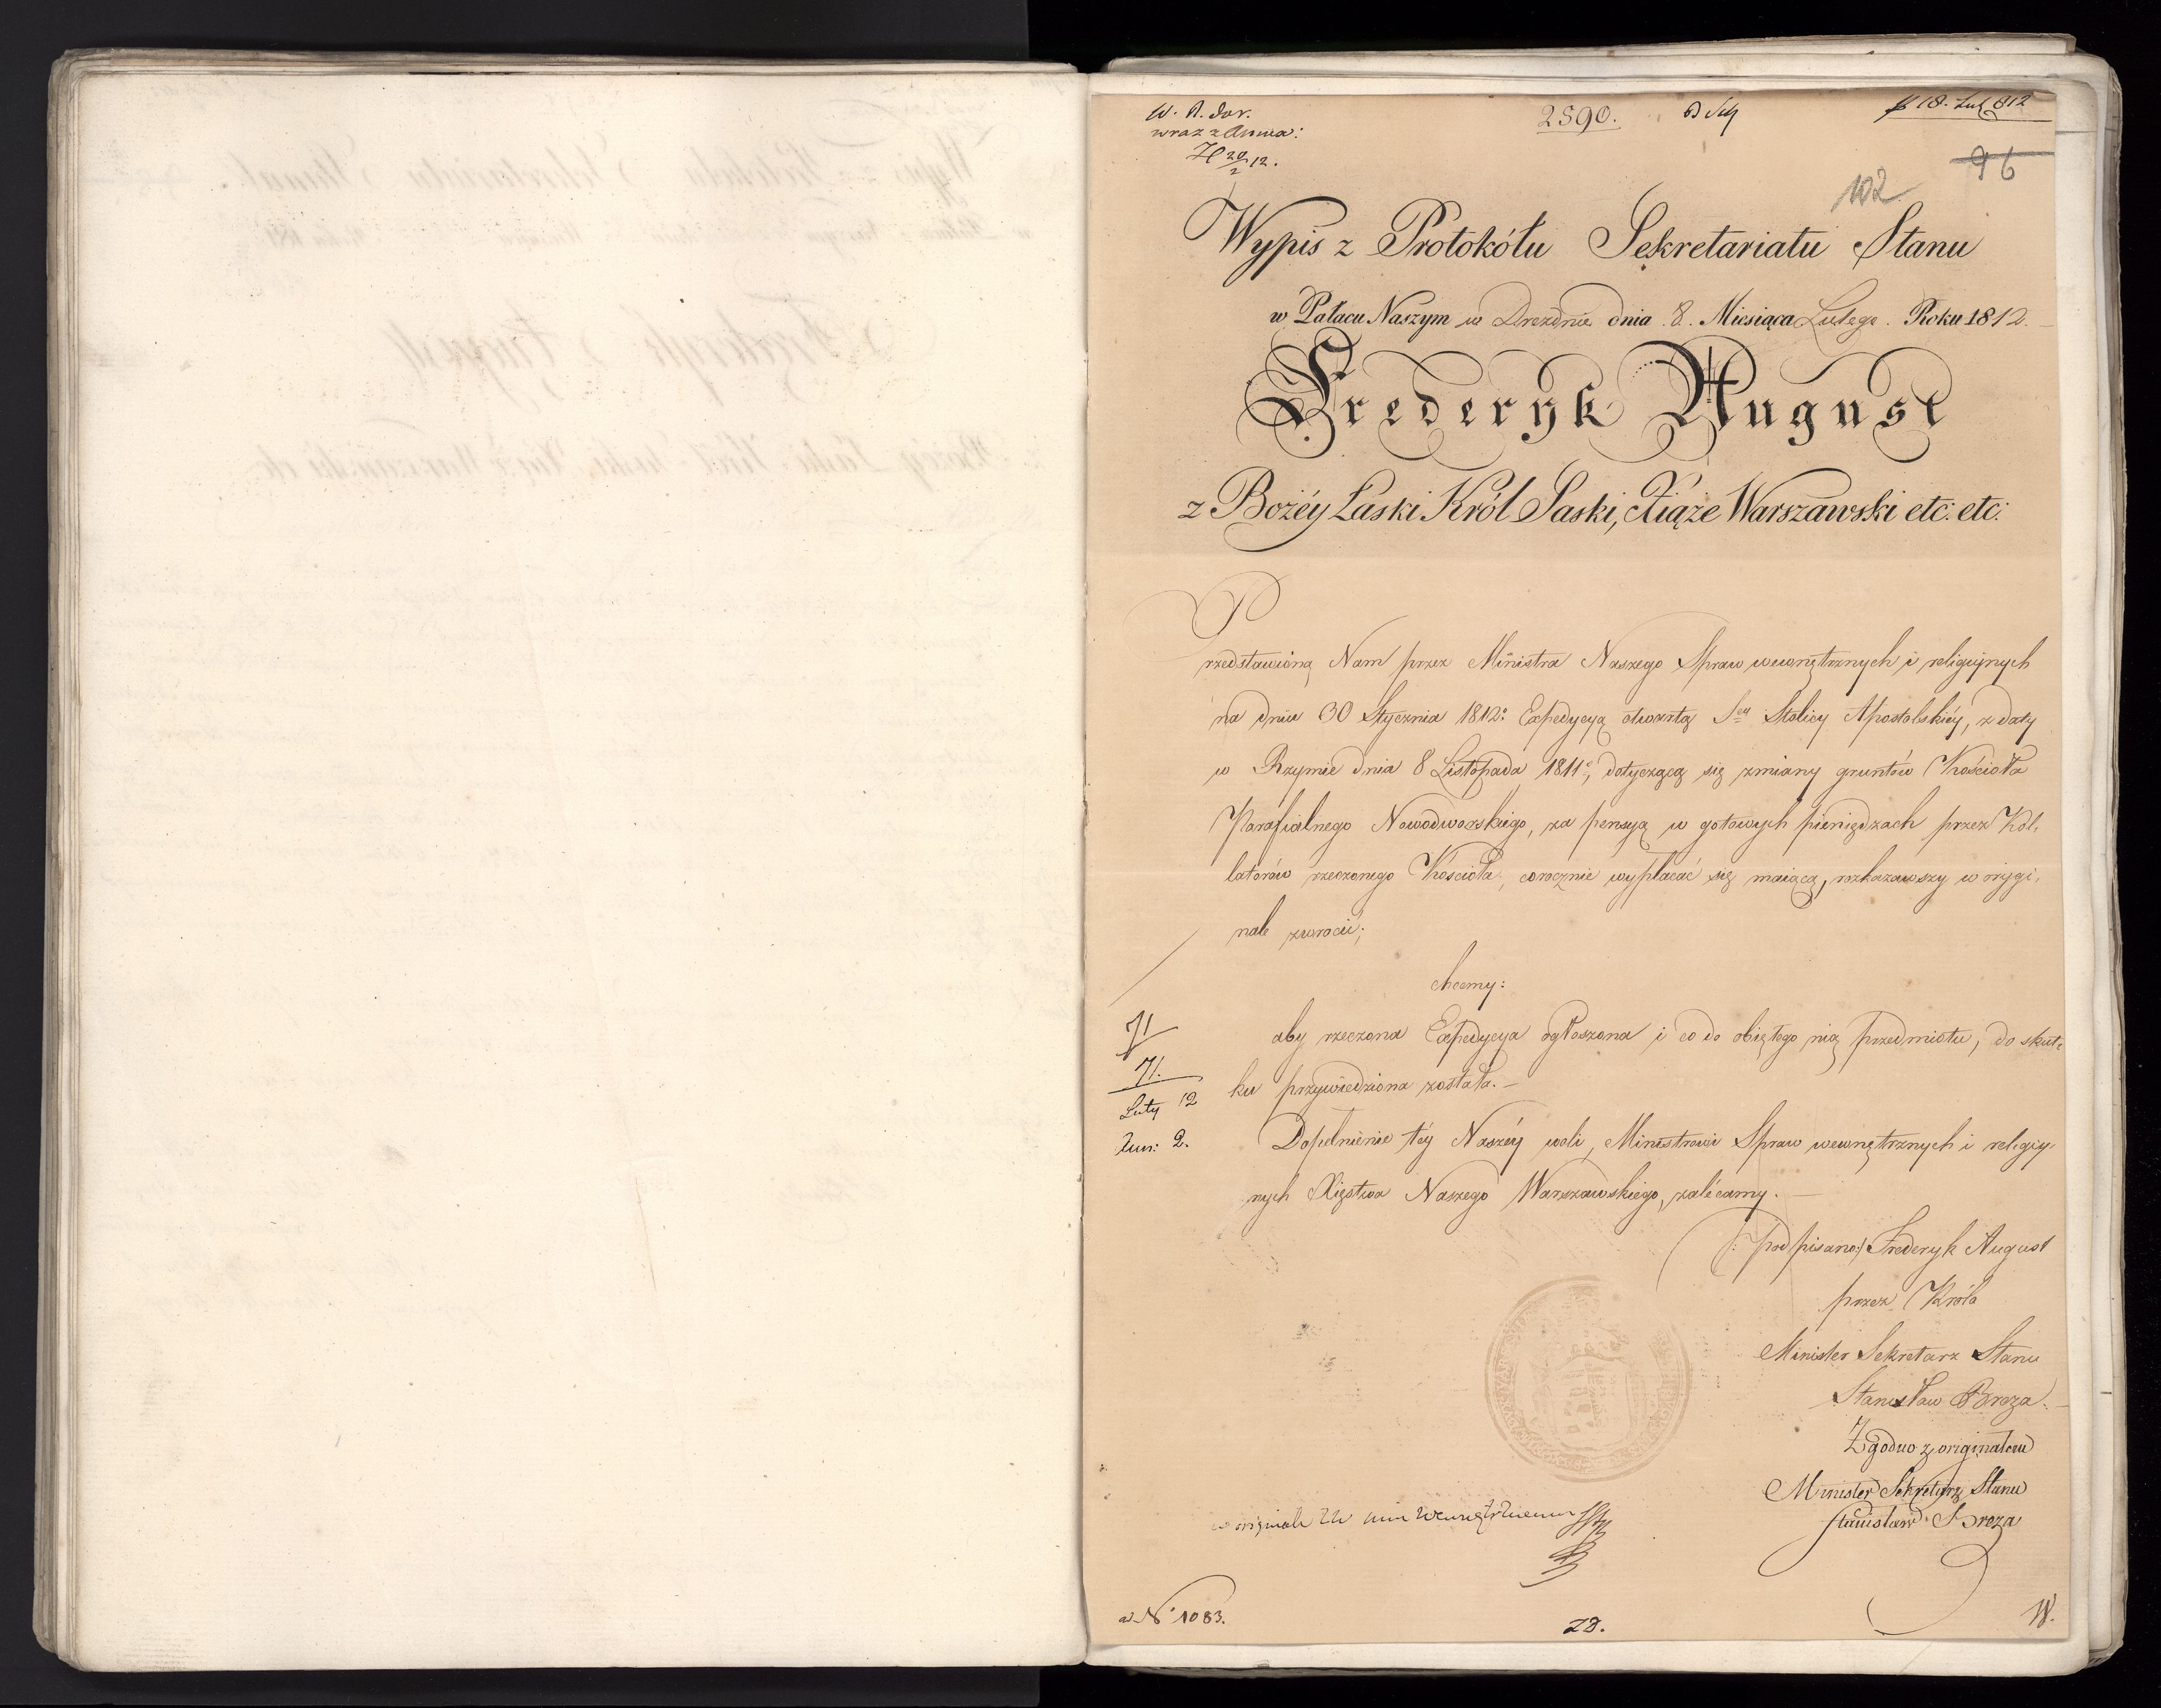 W. R. Dor.
wraz z Anna:
20/2 12.
2590.
18. Lut 812
96
102
Wypis z Protokółu Sekretariatu Stanu
w Pałacu Naszym w Dreźdnie dnia 8. Miesiąca Lutego. Roku 1812.
Frederyk August
z Bożéy Łaski Król Saski, Xiąże Warszawski etc: etc:
Przedstawioną Nam przez Ministra Naszego Spraw wewnętrznych i religiynych
na dniu 30 Stycznia 1812: Expedycyą otwartą S^ey Stolicy Apostolskiéy, z daty
w Rzymie dnia 8 Listopada 1811, dotyczącą się zmiany gruntów Kościoła
Parafialnego Nowodworskiego, za pensyą w gotowych pieniędzach przez Kol-
latorów rzeczonego Kościoła, corocznie wypłacać się maiącą, rozkazawszy w orygi-
nale zwrócić;
chcemy:
aby rzeczona Expedycya ogłoszona i co do obiętego nią przedmiotu, do skut-
ku przywiedziona została.
71
71.
Luty 12
2.
Dopełnienie téy Naszéy woli, Ministrowi Spraw wewnętrznych i religiy-
nych Xięstwa Naszego Warszawskiego, zalécamy.
(: podpisano:) Frederyk August
przez Króla
Minister Sekretarz Stanu
Stanisław Breza.
Zgodno z originałem
Minister Sekretarz Stanu
Stanisław Breza
w originale
ad N° 1083.
28.
W.